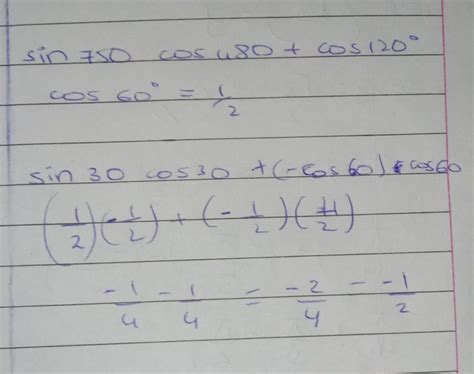 sin 750 cos 480 + cos 120°
cos 60° = 1/2
sin 30 cos 30 + (-cos 60) cos 60
(1/2)(-1/2) + (-1/2)(1/2)
-1/4 - 1/4 = -2/4 - -1/2